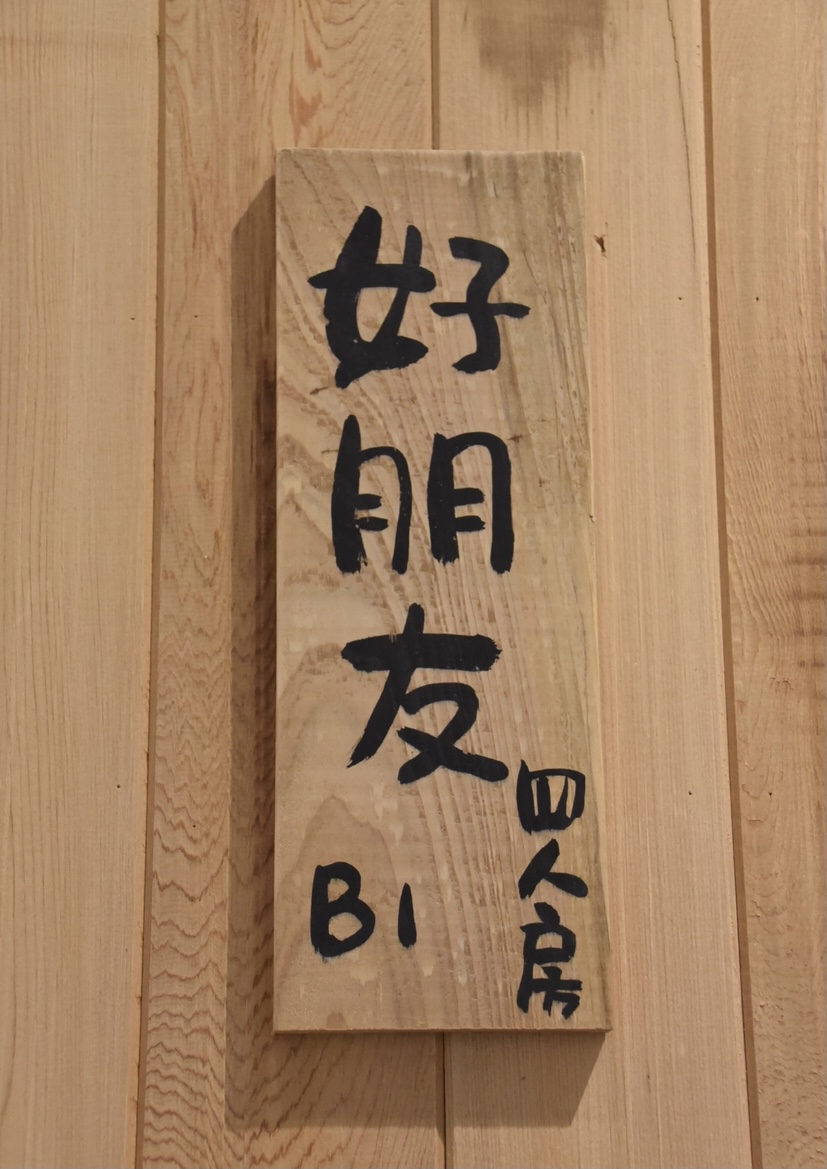 好朋友
四人房
B1